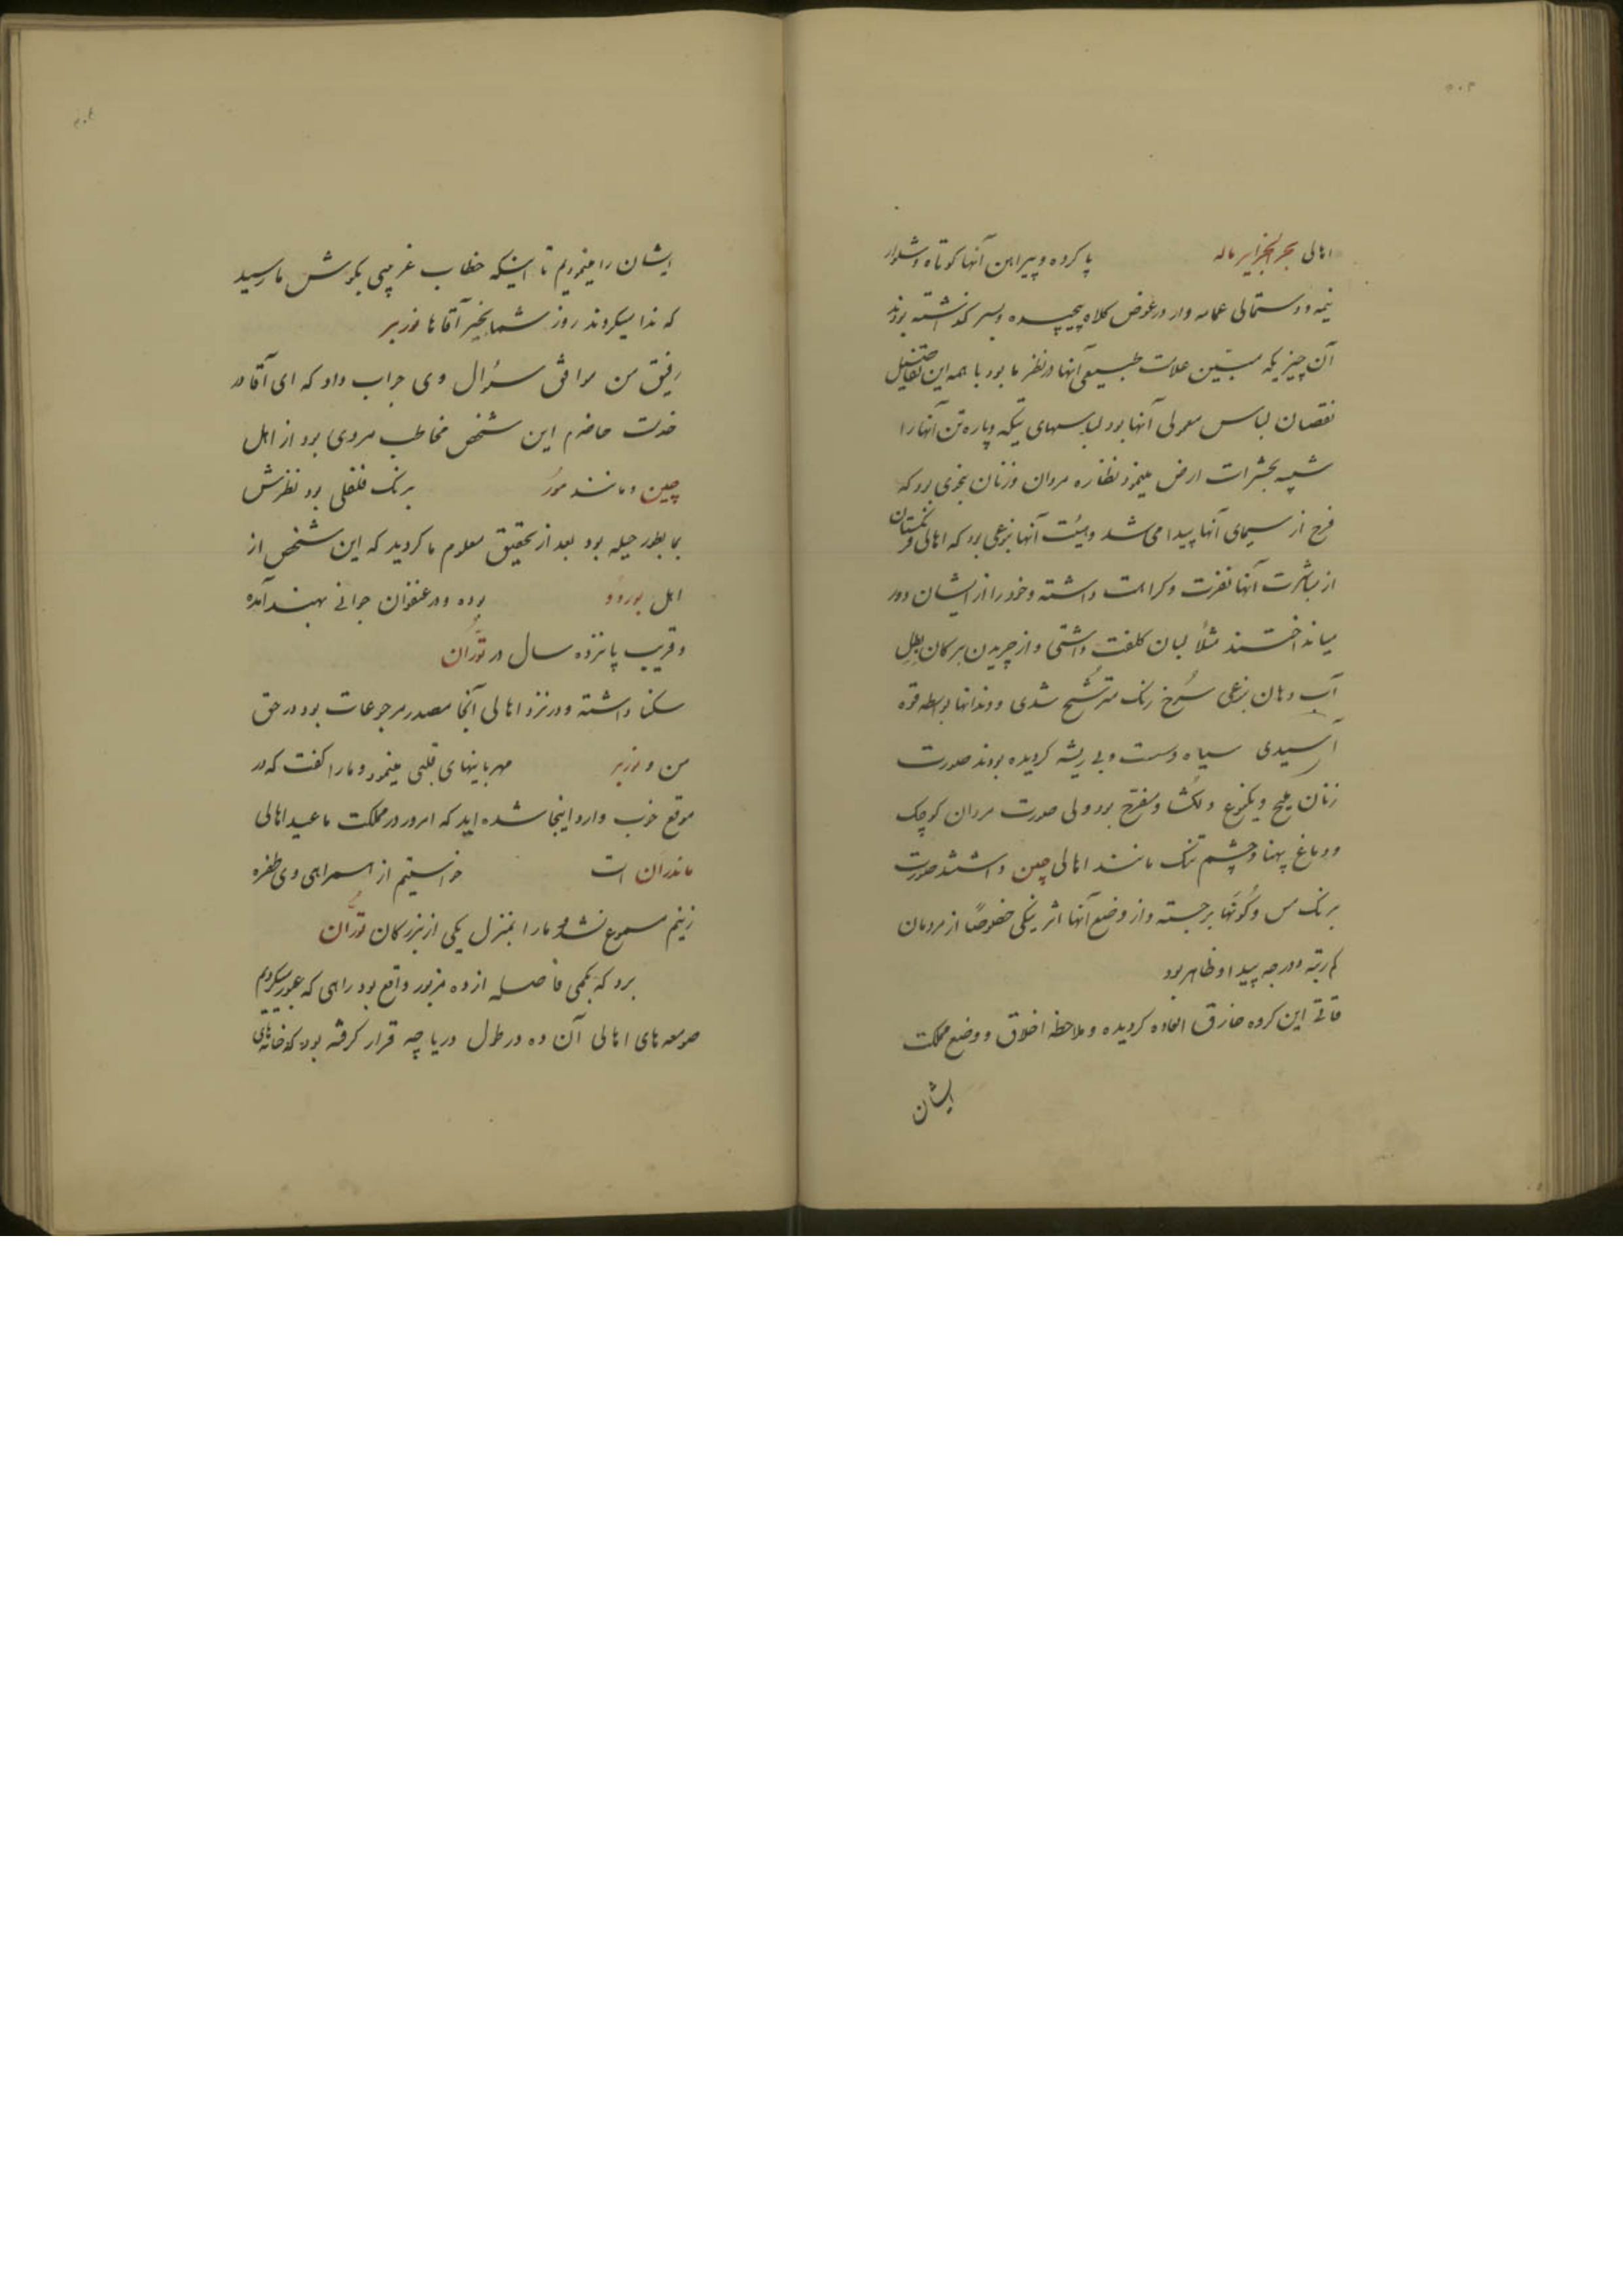 اهالی بحر الجزایر ماله پا کرده و پیراهن آنها کوتاه و شلوار
نیمه و دستمالی عمامه وار در عوض کلاه پیچیده و بسر گذاشته بودند
آن چیزیکه مبیّن علامت طبیعی آنها در نظر ما بود با همه این تفاصیل
نقصان لباس معمولی آنها بود لباسهای تیکه و پاره تن آنها را
شبیه بحشرات ارض مینمود نظاره مردان و زنان بنحوی بود که
فرح از سیمای آنها پیدا می شد و هیئت آنها بنوعی بود که اهالی فرنگستان
از مباشرت آنها نفرت و کراهت داشته و خود را از ایشان دور
میانداختند مثلاً لبان کلفت داشتی و از چریدن برگان بطل
آب دهان بنوعی سُرخ رنگ مترشّح شدی و دندانها بواسطه قوه
آسیدی سیاه و سست و بی ریشه گردیده بودند صورت
زنان ملیح و یکنوع دلکُشا و مفرّح بود ولی صورت مردان کوچک
و دماغ پهنا و چشم تنگ مانند اهالی چین داشتند صورت
برنگ مس و گونها برجسته و از وضع آنها اثر نیکی خصوصاً از مردمان
کم رتبه و درجه پیدا و ظاهر بود
قاتی این گروه خارق العاده گردیده و ملاحظه اخلاق و وضع مملکت
ایشان
ایشان را مینمودیم تا اینکه خطاب غریبی بگوش ما رسید
که ندا میکردند روز شما بخیر آقا نا نوزبر
رفیق من موافق سؤال وی جواب داد که ای آقا در
خدمت حاضرم این شخص مخاطب مردی بود از اهل
چین و مانند مور برنگ فلفلی بود نظرش
بما بطور حیله بود بعد از تحقیق معلوم ما گردید که این شخص از
اهل بوردو بوده و در عنفوان جوانی بهند آمده
و قریب پانزده سال در توُران
سکنا داشته و در نزد اهالی آنجا مصدر مرجوعات بود در حق
من و نوزبر مهربانیهای قلبی مینمود و ما را گفت که در
موقع خوب وارد اینجا شده اید که امروز در مملکت ما عید اهالی
ماندران است خواستیم از همراهی وی طفره
زنیم مسموع نشد و ما را بمنزل یکی از بزرگان توُران
برد که بکمی فاصله از ده مزبور واقع بود راهی که عبور میکردیم
صومعه های اهالی آن ده در طول دریاچه قرار گرفته بود که خانه های